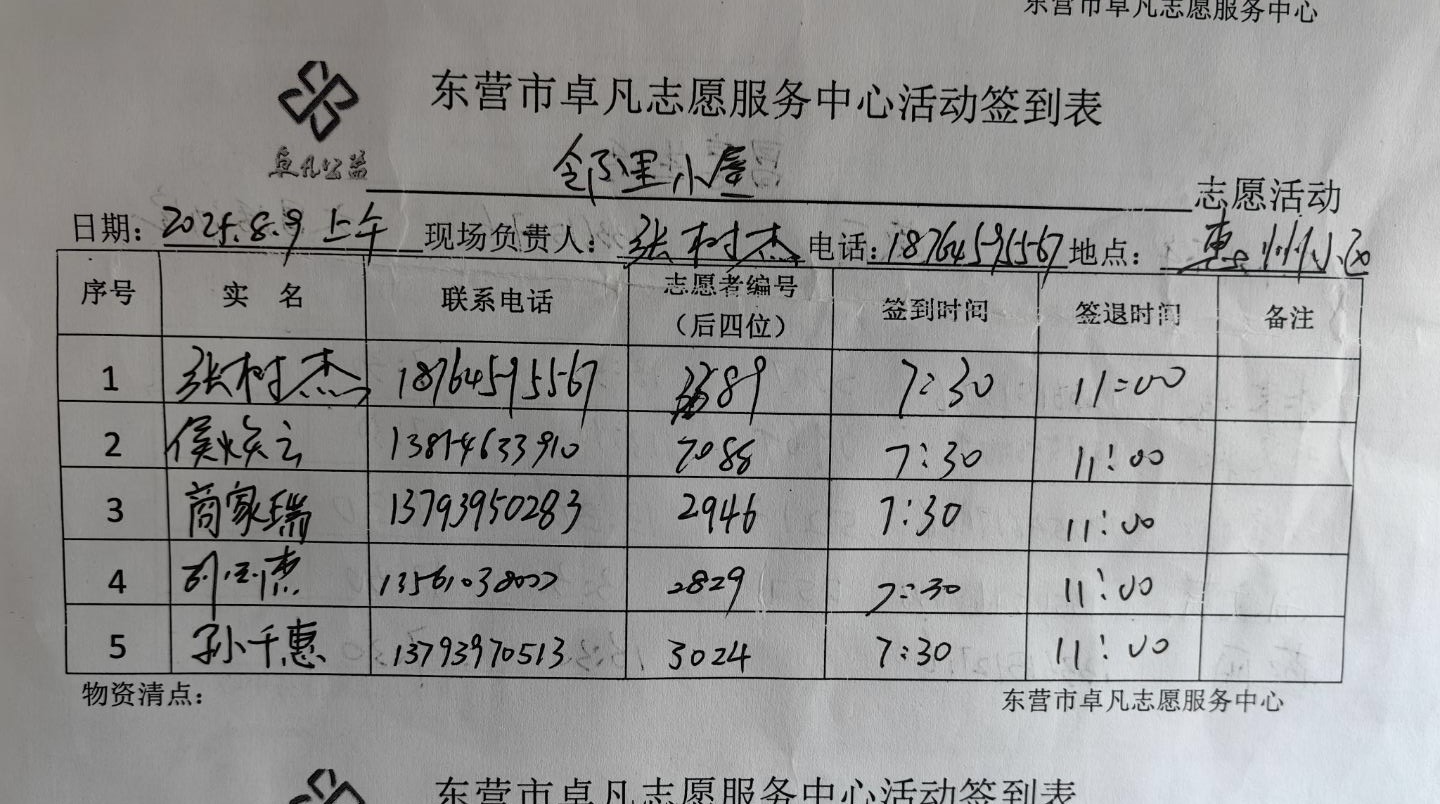 东营市卓凡志愿服务中心
东营市卓凡志愿服务中心活动签到表
卓凡公益
邻里小屋 志愿活动
日期: 2025.8.9 上午 现场负责人: 张树杰 电话: 18764595567 地点: 惠州小区
序号 实 名 联系电话 志愿者编号(后四位) 签到时间 签退时间 备注
1 张树杰 18764595567 89 7:30 11:00
2 侯焕云 7086 7:30 11:00
3 商家瑞 13793950283 2946 7:30 11:00
4 2829 7:30 11:00
5 孙千惠 13793970513 3024 7:30 11:00
物资清点: 东营市卓凡志愿服务中心
东营市卓凡志愿服务中心活动签到表